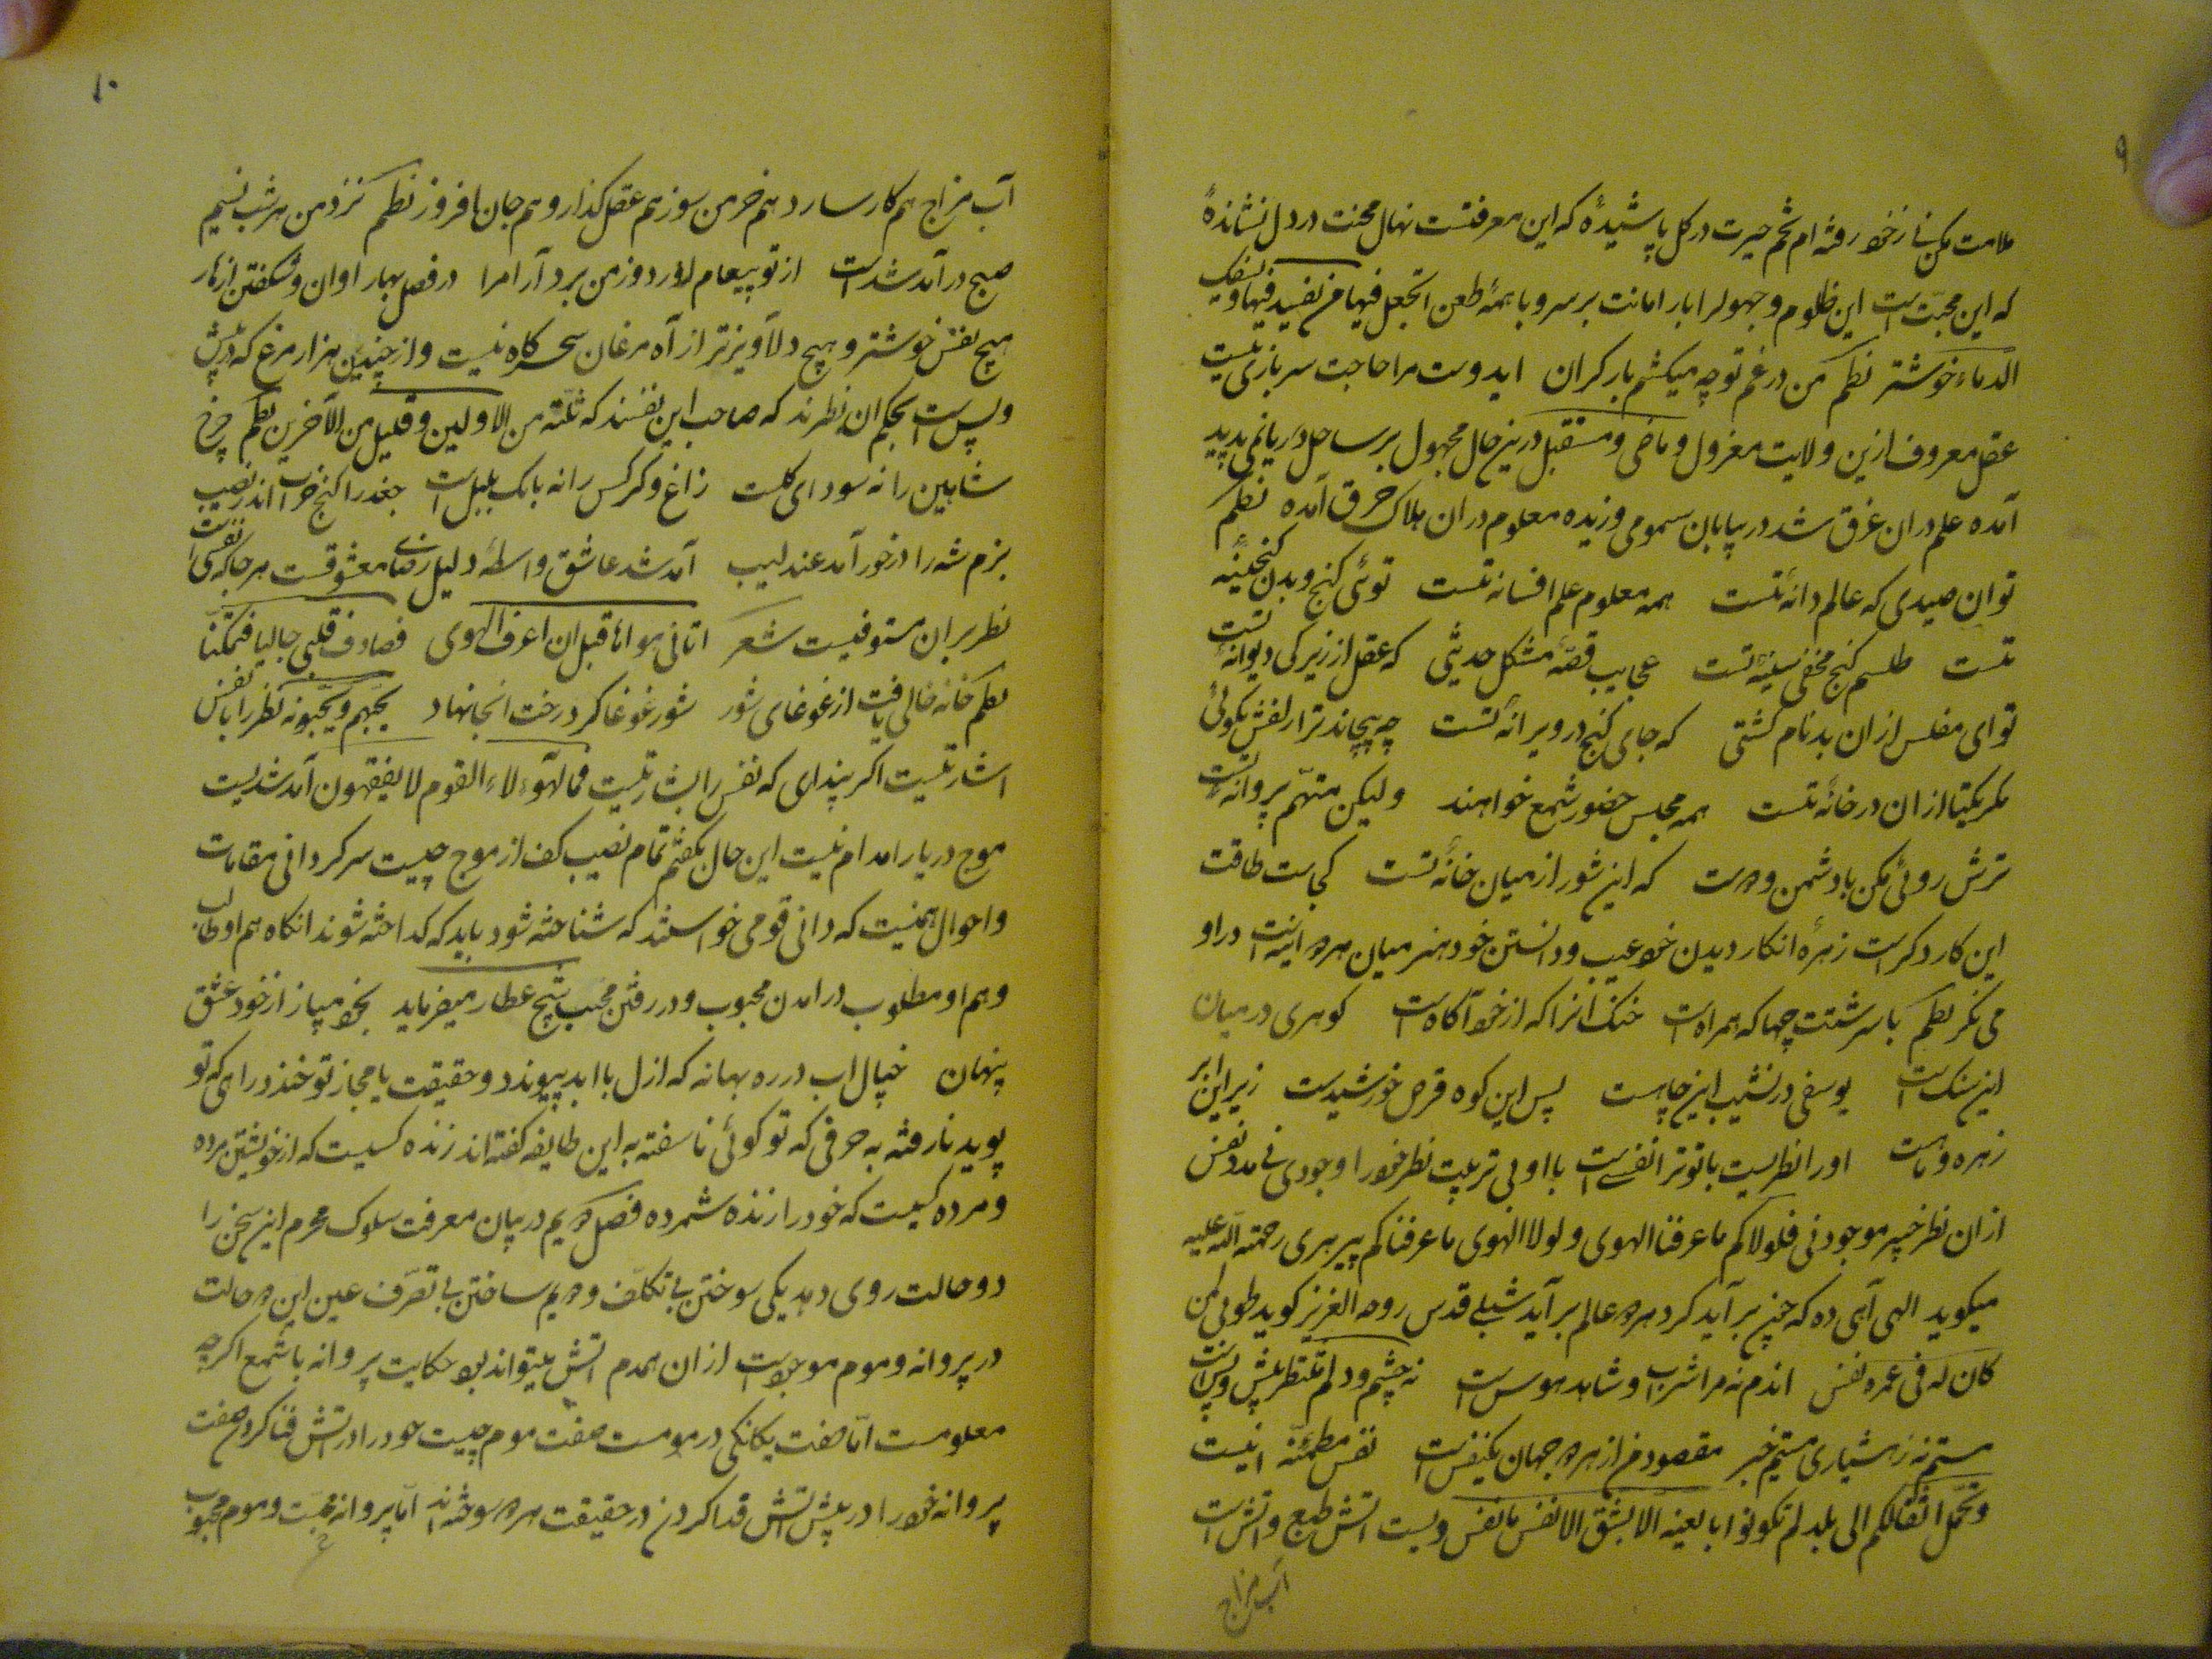 ۹
ملامت مکن نیاز خود رفته ام تخم حیرت در کل پاشیدهٔ که این معرفتست نهال محنت در دل نشاندهٔ
که این محبّت است این ظلوم و جهول را بار امانت بر سر و با همهٔ طعن اتجعل فیها من یفسد فیها و یسفک
الدماء خوشتر نظم من در غم تو چه میکشم بار کران ایدوست مرا حاجت سربازی نیست
عقل معروف ازین ولایت معزول و ماضی و مستقبل درین حال مجهول بر ساحل دریا نمی پدید
آمده علم دران غرق شد در بیابان سمومی وزیده معلوم دران هلاک حرق آمده نظم
توان صیدی که عالم دانهٔ تست همه معلوم علم افسانه تست توئی کنج و بدن کنجینهٔ
تست طلسم کنج مخفی سینهٔ تست عجایب قصهٔ مشکل حدیثی که عقل از زیرکی دیوانهٔ تست
تو ای مفلس ازان بدنام کشتی که جای کنج در ویرانهٔ تست چه پیچاند ترا زلفش نکوئی
مکر یکتا ازان در خانهٔ تست همه مجلس حضور شمع خواهند ولیکن متهّم پروانهٔ تست
ترش روئی مکن با دشمن و دوست که این شور از میان خانهٔ تست کجاست طاقت
این کار دکر است زهرهٔ انکار دیدن خود عیب و دانستن خود هنر میان هر دو اینست در او
می نکر نظم با سرشتت چها که همراه است خنک آنرا که از خود آکاه است کوهری در میان
این سنک است یوسفی در نشیب این چاهست پس این کوه قرص خورشیدست زیر این ابر
زهره و ماهست او را نظریست با تو ترا نفسی است با او بی تربیت نظر خود را وجودی نی مدد نفس
ازان نظر خبیر موجود نی فلولاکم ما عرفنا الهوی و لولا الهوی ما عرفناکم پیر هری رحمة الله علیه
میکوید الهی آهی ده که چنین برآید کرد هر دو عالم برآید شبلی قدس روحه العزیز کوید طوبی لمن
کان له فی عمره نفس اندم نه مرا شراب و شاهد هوس است نه چشم و دلم منتظر پیش و پس است
مستم نه ز هشیاری مستیم خبر مقصود من از هر دو جهان یکنفس است نفس مطمئنه انیست
و تحمل اثقالکم الی بلد لم تکونوا بالغیه الا بشق الانفس نفس دیست آتش طبع و آتش است
آب مزاج
۱۰
آب مزاج هم کار ساز دهم خرمن سوز هم عقل کداز و هم جان افروز نظم نزد من هر شب نسیم
صبح در آمد شد است از تو پیغام آورد وز من برد آرام را در فصل بهار اوان و شکفتن ازهار
هیچ نفس خوشتر و هیچ دلآویزتر از آه مرغان سحرکاه نیست و از چندین هزار مرغ که در پیش
و پس است بحکم ان نظرند که صاحب این نفسند که ثلّة من الاولین و قلیل من الآخرین نظم چرخ
شاهین را نه سودای کلست زاغ و کرکس را نه بانک بلبل است جغد را کنج خراب اندر نصیب
بزم شه را در خور آمد عندلیب آمد شد عاشق واسطهٔ دلیل رضای معشوقست هر جا که نفسی است
نظر بران مستوفیست شعر اتانی هواها قبل ان اعرف الهوی فصادف قلبی خالیا فتمکنا
نظم خانه خالی یافت از غوغای شور شور غوغا کرد رخت انجا نهاد یحبهم و یحبونه نظر را با نفس
اشارتیست اکر پنداری که نفس را بشارتیست فما لهؤلاء القوم لا یفقهون آمد شدیست
موج دریا را مدام نیست این حال بکفتم تمام نصیب کف از موج چیست سرکردانی مقامات
و احوال همینست که دانی قومی خواستند که شناخته شود باید که کداخته شوند انکاه هم او طالب
و هم او مطلوب در آمدن محبوب و در رفتن محبّ شیخ عطار میفرماید بخود میباز از خود عشق
پنهان خیال اب در ره بهانه که ازل با ابد پیوندد و حقیقت با مجاز تو خندد راهی که تو
پوید نارفته به حرفی که تو کوئی ناسفته به این طایفه کفته اند زنده کسیست که از خویشتن مرده
و مرده کیست که خود را زنده شمرده فصل دویم در بیان معرفت سلوک محرم این سخن را
دو حالت روی دهد یکی سوختن بی تکلّف و دویم ساختن بی تصرّف عین این دو حالت
در پروانه و موم موجود است ازان همدم آتش میتواند بود حکایت پروانه با شمع اکرچه
معلومست امّا صفت یکانکی در مومست صفت موم چیست خود را در آتش فنا کردن صفت
پروانه خود را در پیش آتش فدا کردن در حقیقت هر دو سوخته اند امّا پروانه محبّت و موم محبوب